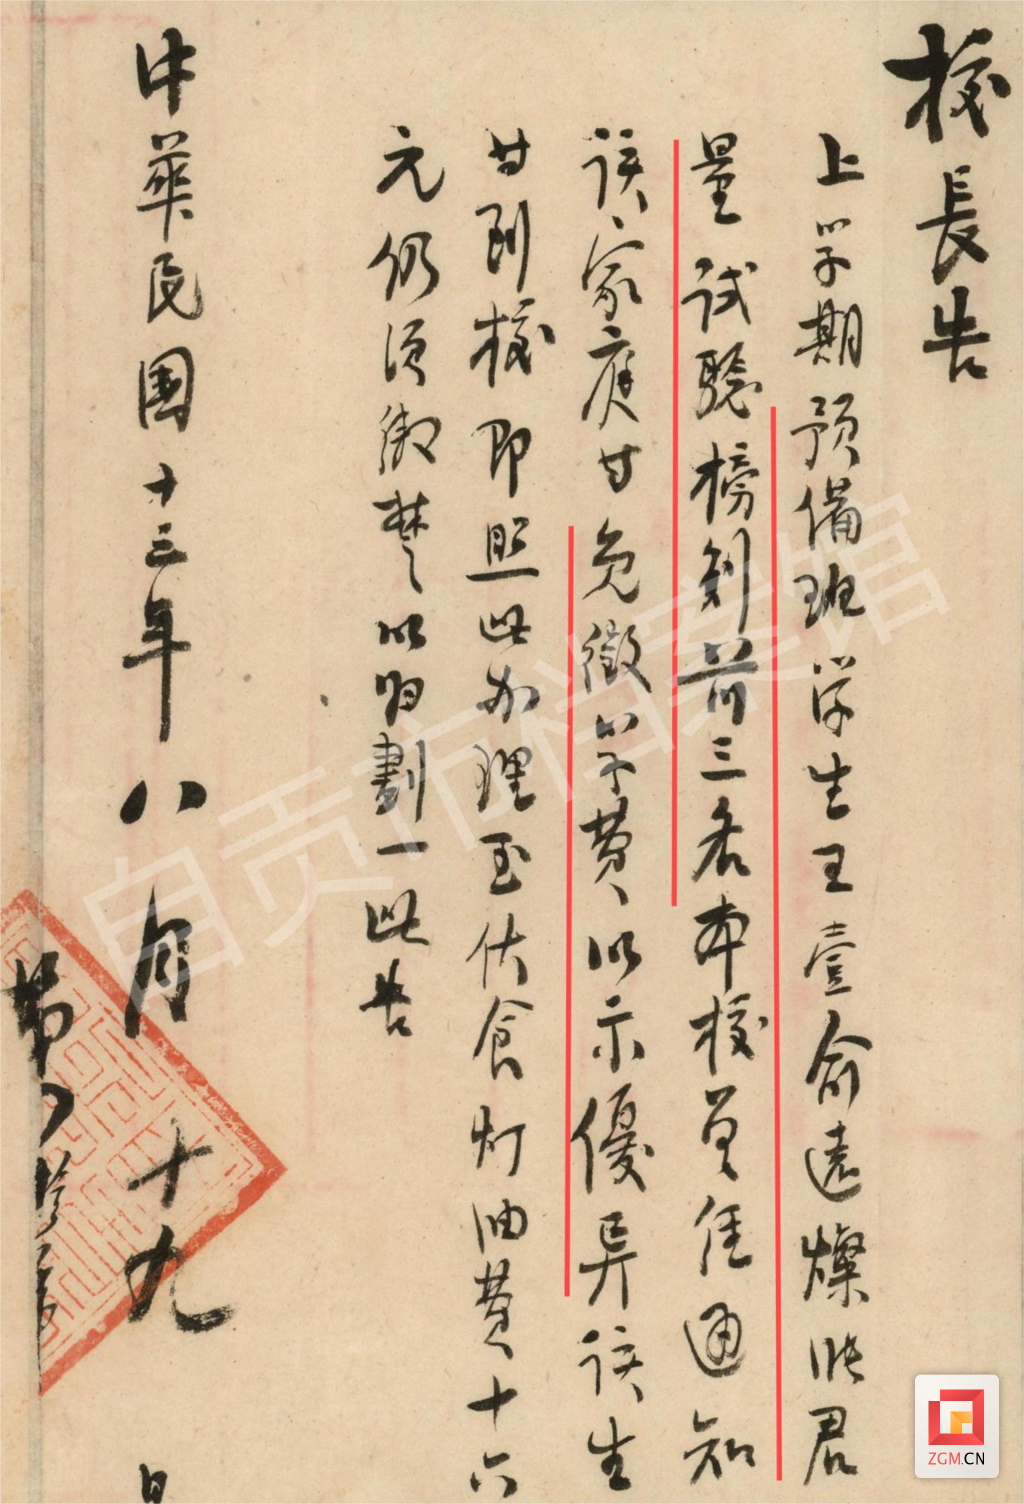 校長告
上学期預備班学生王壹俞遠燦張君
量試驗榜列前三名本校曾経通知
該家庭甘免徵学費以示優異該生
甘到校即照此办理至伙食灯油費十六
元仍須繳楚以归劃一此告
中華民國十三年八月十九日
自贡市档案馆
ZGM.CN